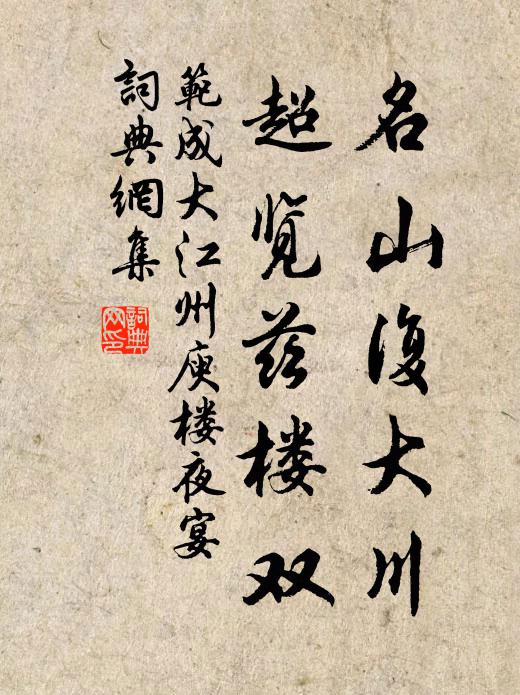 名山復大川
超览兹楼双
範成大江州庾楼夜宴
詞典網集
詞典网印